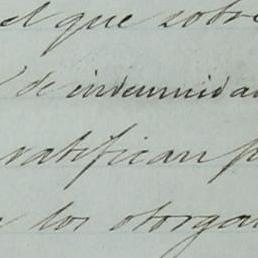 el que sobre
de indemnidad
ratifican p
los otorga